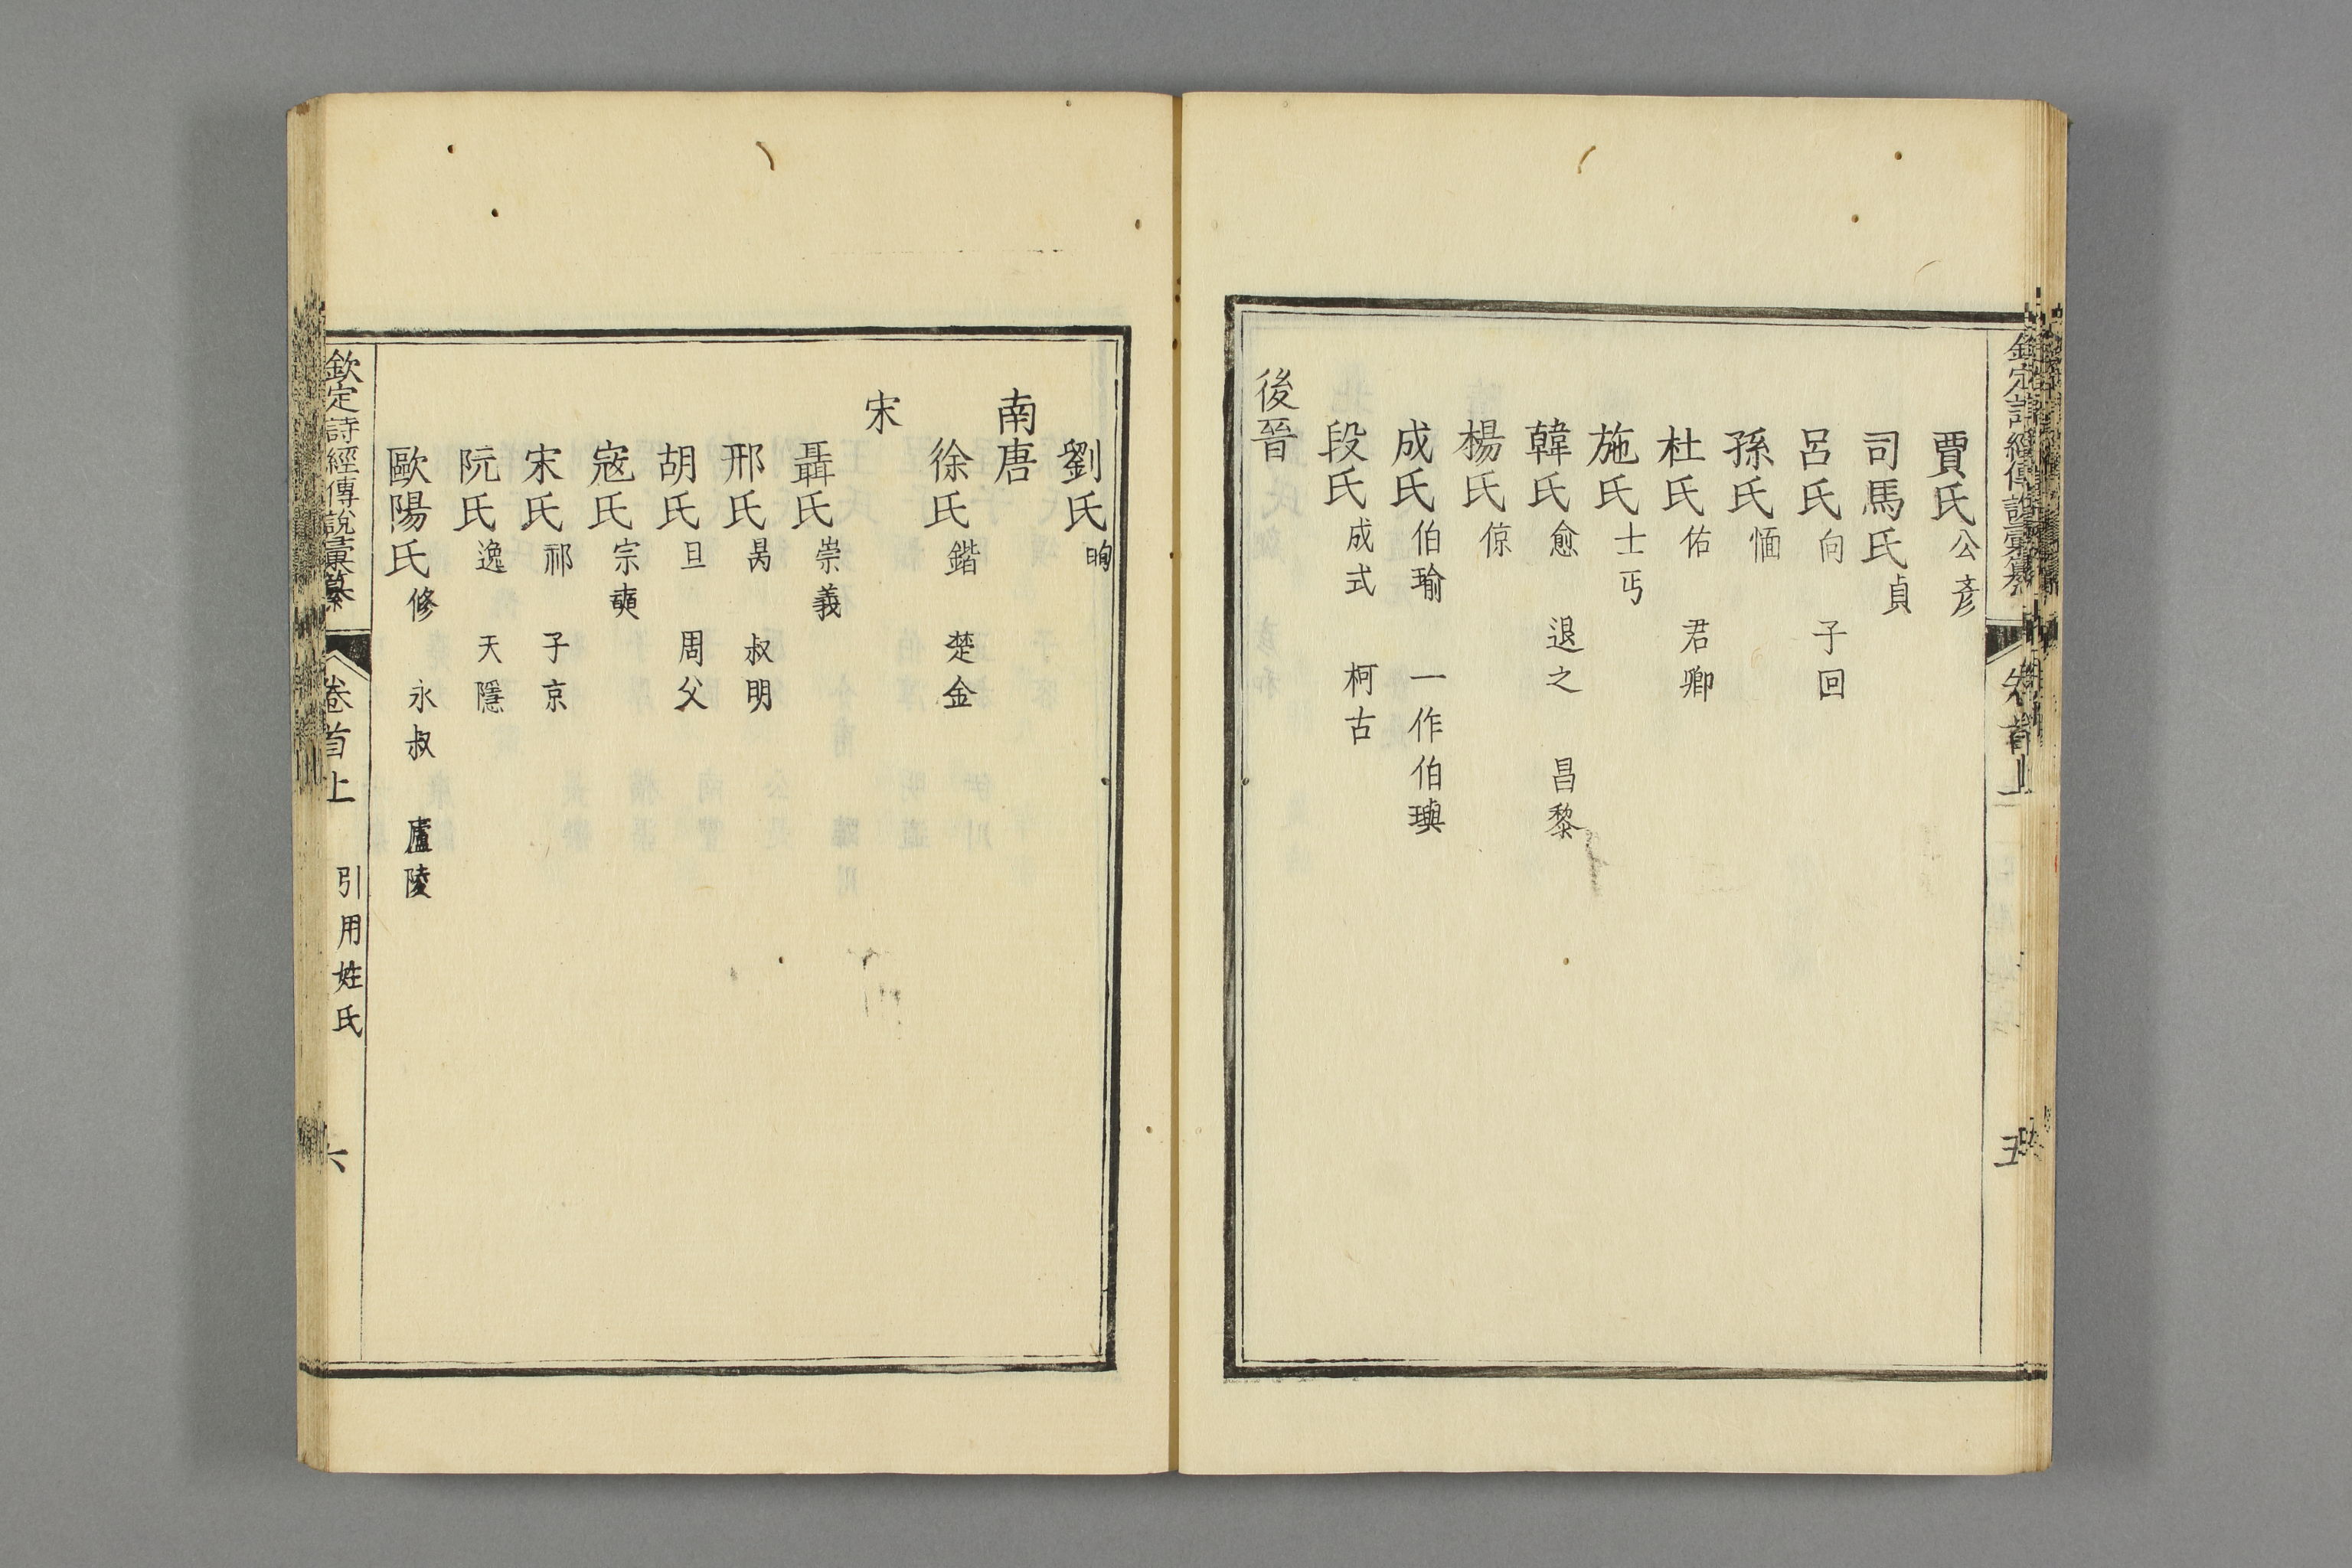 賈氏公彥
司馬氏貞
呂氏向 子回
孫氏愐
杜氏佑 君卿
施氏士丐
韓氏愈 退之 昌黎
楊氏倞
成氏伯瑜 一作伯璵
段氏成式 柯古
後晉
劉氏昫
南唐
徐氏鍇 楚金
宋
聶氏崇義
邢氏昺 叔明
胡氏旦 周父
寇氏宗奭
宋氏祁 子京
阮氏逸 天隱
歐陽氏修 永叔 廬陵
欽定詩經傳說彙纂 卷首上 引用姓氏 六